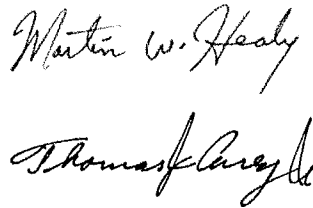 Martin W. Healy
Thomas J Carey Jr